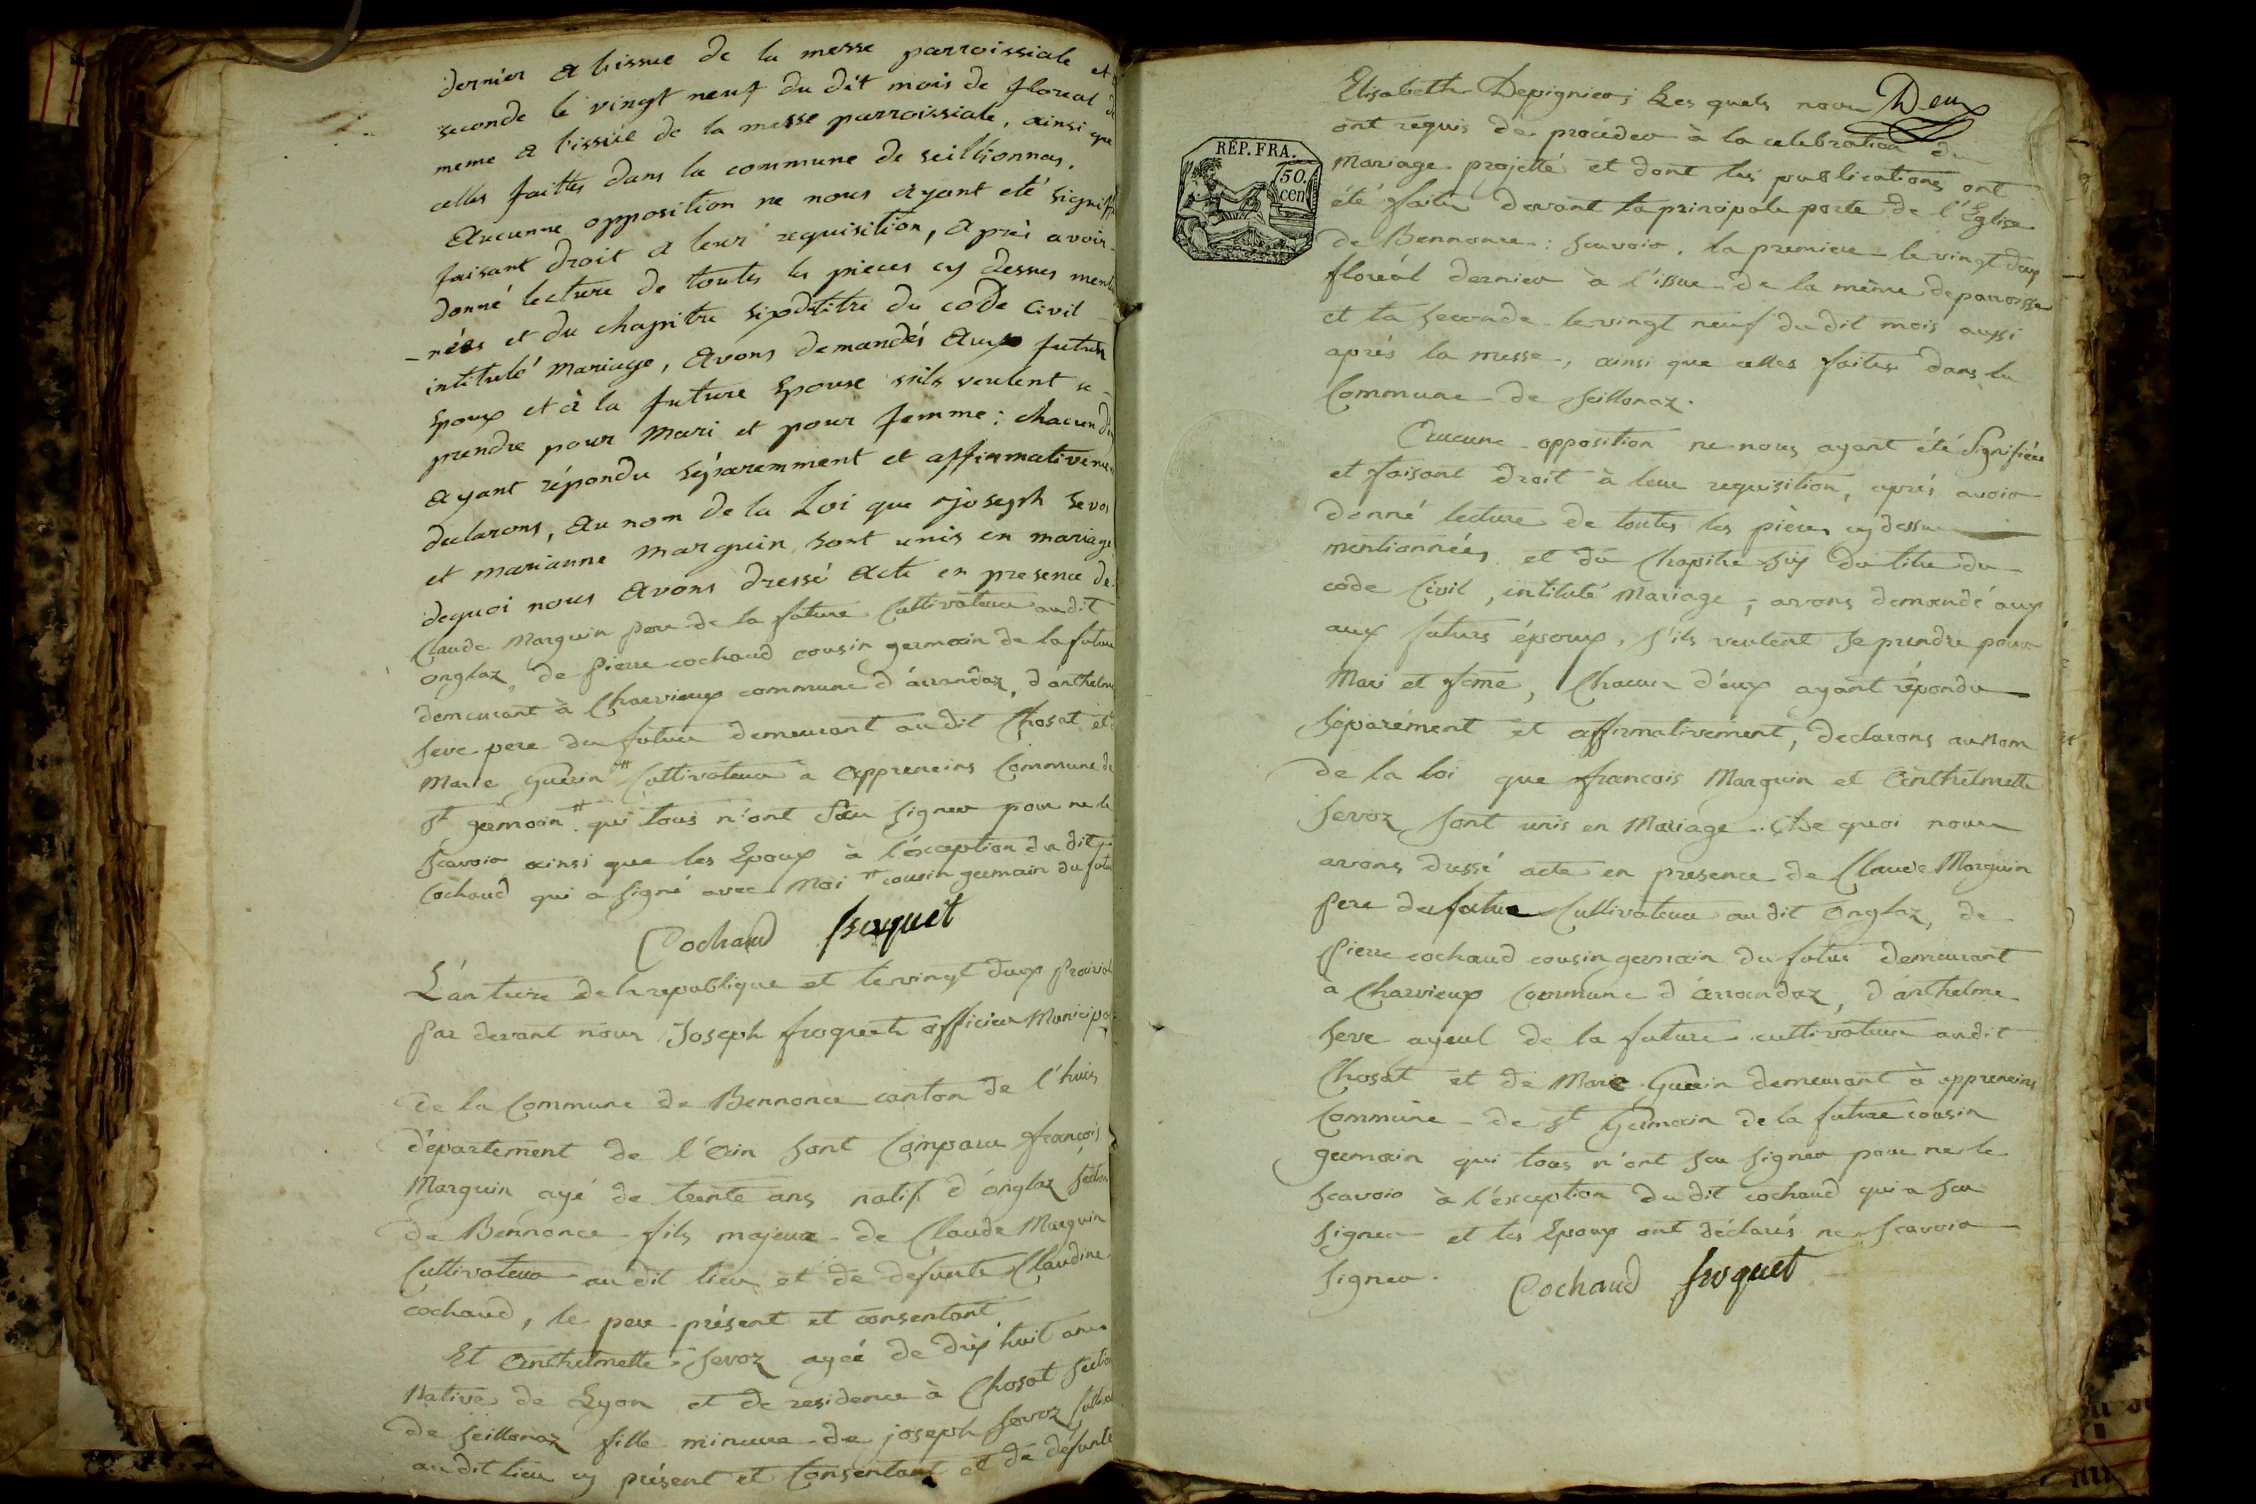 dernier a l'issue de la messe parroissiale et
seconde le vingt neuf du dit mois de floreal de
meme a l'issüe de la messe parroissiale, ainsi que
celles faittes dans la commune de seillionnas.
Aucunne opposition ne nous ayant eté signiffi
faisant droit a leur requisition, après avoir
donné lecture de toutes les pièces cy dessus menti
-nées et du chapitre six du titre du code civil
intitulé mariage, avons demandés aux futur
Epoux et à la future Epouse s'ils veulent se
prendre pour mari et pour femme : chacun d'eu
ayant répondu séparemment et affirmativeme
declarons, au nom de la Loi que joseph sevos
et marianne marguin sont unis en mariage
dequoi nous avons dressé acte en presence de
Claude Marguin pere de la future Cultivateur au dit
onglaz, de pierre cochaud cousin germain de la future
demeurant à Charvieux commune d'arrandaz, d'anthelme
seve pere du futur demeurant au dit Chosat et
Marie Guerin # Cultivateur a appreneins Commune de
st germain # qui tous n'ont sçu signer pour ne le
scavoir ainsi que les Epoux à l'éxception du dit
Cochaud qui a signé avec Moi # cousin germain du futu
Cochaud froquet
L'an treize de la republique et le vingt deux prairial
Par devant nous Joseph froquet officier Municipa
de la Commune de Bennonce canton de l'huis
département de l'Ain sont Comparu françois
Marguin agé de trente ans natif d'onglaz section
de Bennonce fils majeur de Claude Marguin
Cultivateur au dit lieu et de defunte Claudine
cochaud, le pere présent et consentant
Et Anthelmette Sevoz agée de dix huit ans
Native de Lyon et de residence à Chosat section
de Seillonaz fille mineure de joseph Sevoz Cultiva
au dit lieu cy présent et Consentant et de défunte
Deux
Elisabeth Depignier; Les quels nous
ont requis de procéder à la celebration du
RÉP. FRA.
50.
cen
Mariage projetté et dont les publications ont
été faites devant la principale porte de l'Eglise
de Bennonce : scavoir, la premiere le vingt deux
floréal dernier à l'issue de la même de paroisse
et la seconde le vingt neuf du dit mois aussi
après la messe, ainsi que celles faites dans la
Commune de Seillonaz.
Aucune opposition ne nous ayant été signifiée
et faisant droit à leur requisition, après avoir
donné lecture de toutes les pièces cy dessus
mentionnées et du Chapitre six du titre du
code Civil, intitulé Mariage, avons demandé aux
aux futurs époux, s'ils veulent se prendre pour
Mari et fême, Chacun d'eux ayant répondu
séparément et affirmativement, declarons au Nom
de la loi que francois Marguin et Anthelmette
Sevoz sont unis en Mariage. De quoi nous
avons dressé acte en presence de Claude Marguin
pere du futur Cultivateur au dit Onglaz, de
Pierre cochaud cousin germain du futur demeurant
a Charvieux Commune d'arrandaz, d'anthelme
seve ayeul de la future cultivateur au dit
Chosat et de Marie Guerin demeurant à appreneins
Commune de st Germain de la future cousin
germain qui tous n'ont sçu signer pour ne le
scavoir à l'éxception du dit cochaud qui a sçu
signer et les Epoux ont déclarés ne scavoir
signer. Cochaud froquet